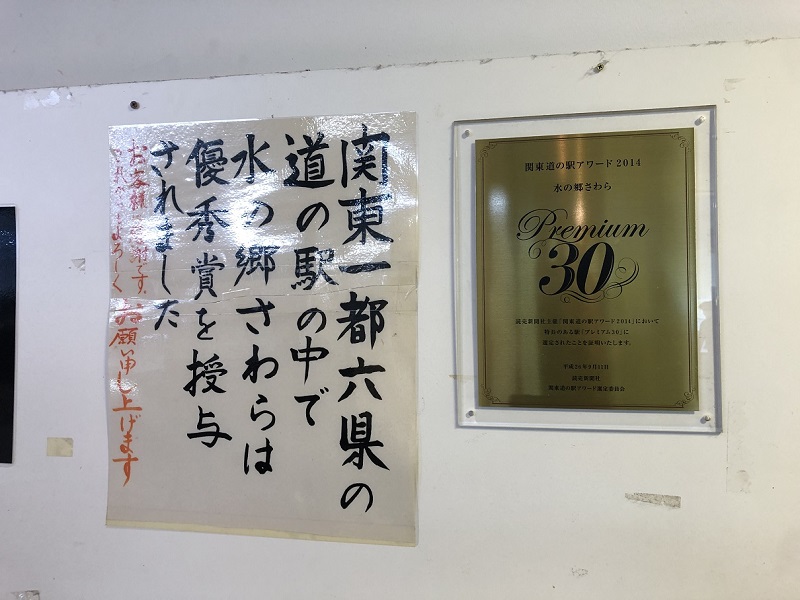 関東一都六県の
道の駅の中で
水の郷さわらは
優秀賞を授与
されました
お客様に感謝です。
これからもよろしくお願い申し上げます
関東道の駅アワード2014
水の郷さわら
Premium
30
読売新聞社主催「関東道の駅アワード2014」において
特長のある駅「プレミアム30」に
選定されたことを証明いたします。
平成26年9月11日
読売新聞社
関東道の駅アワード選定委員会